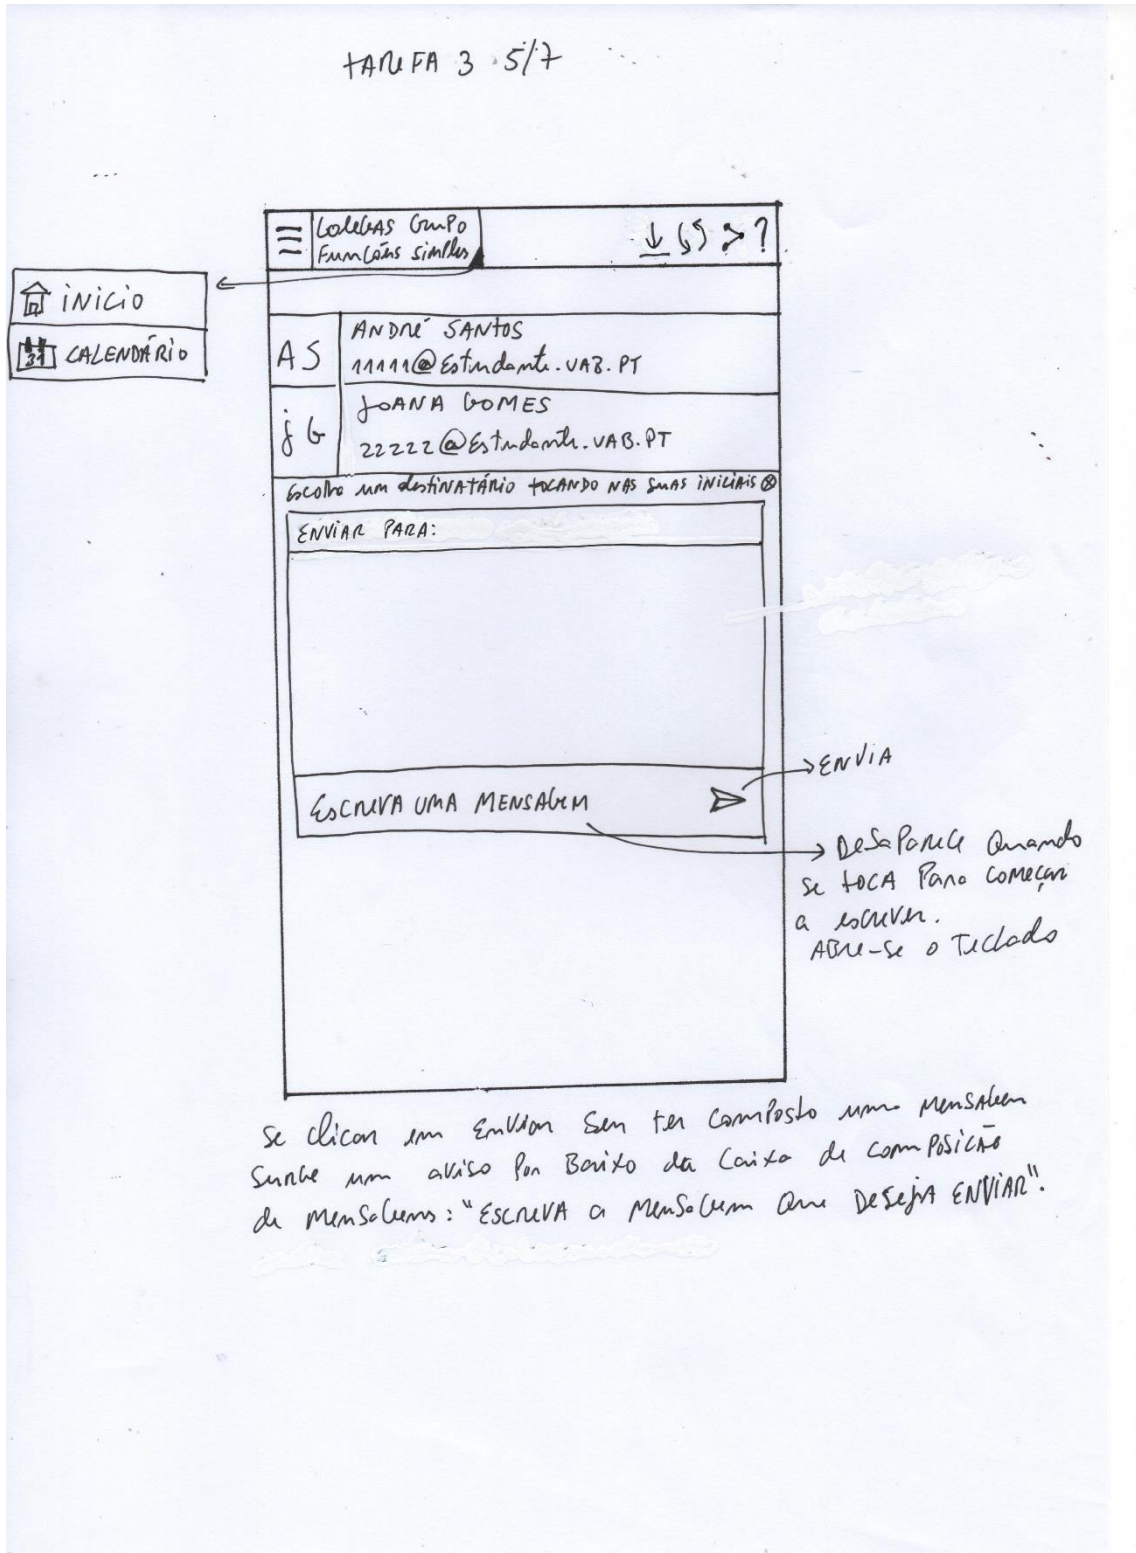 TAREFA 3 5/7
COLEGAS GRUPO
FUNÇÕES SIMPLES
?
INICIO
31 CALENDÁRIO
AS
ANDRÉ SANTOS
11111@Estudante.UAB.PT
JG
JOANA GOMES
22222@Estudante.UAB.PT
Escolha um destinatário tocando nas suas iniciais
ENVIAR PARA:
ENVIA
ESCREVA UMA MENSAGEM
Desaparece quando
se toca para começar
a escrever.
Abre-se o Teclado
Se clicar em enviar sem ter composto uma mensagem
surge um aviso por baixo da caixa de composição
de mensagens: "ESCREVA a mensagem que deseja ENVIAR".